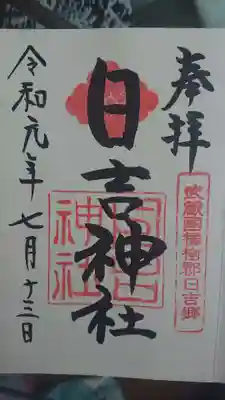 奉拝
武蔵国橘樹郡日吉郷
日吉神社
日吉神社
令和元年七月十三日